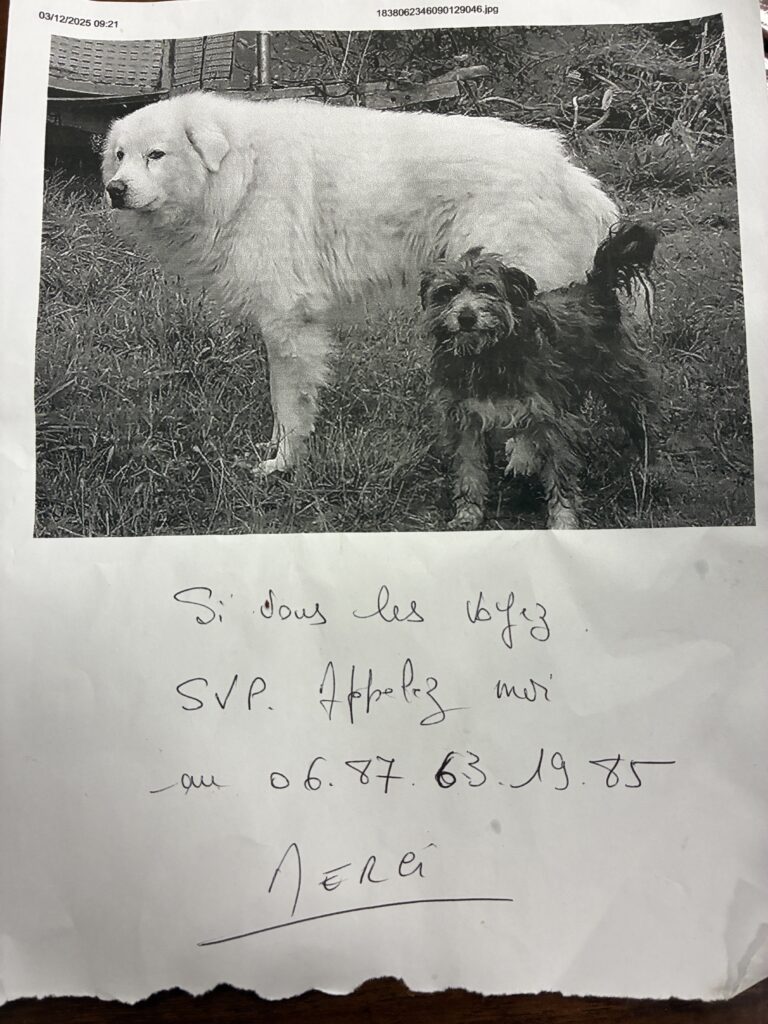 03/12/2025 09:21
1838062346090129046.jpg
Si vous les voyez
SVP. Appelez moi
au 06.87.63.19.85
MERCi